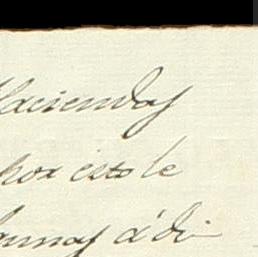 Haciendas
por esto le
á di-